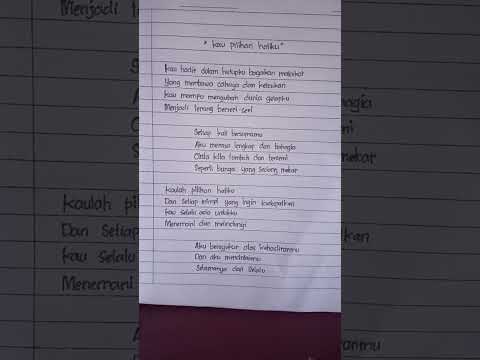 " kau pilihan hatiku "
kau hadir dalam hidupku bagaikan malaikat
Yang membawa cahaya dan kebaikan
kau mampu mengubah dunia gelapku
Menjadi terang berseri seri
Setiap kali bersamamu
Aku merasa lengkap dan bahagia
Cinta kita tumbuh dan bersemi
Seperti bunga yang sedang mekar
kaulah pilihan hatiku
Dan Setiap mimpi yang ingin kudapatkan
kau selalu ada untukku
Menemani dan melindungi
Aku bersyukur atas kehadiranmu
Dan aku mencintaimu
Selamanya dan Selalu